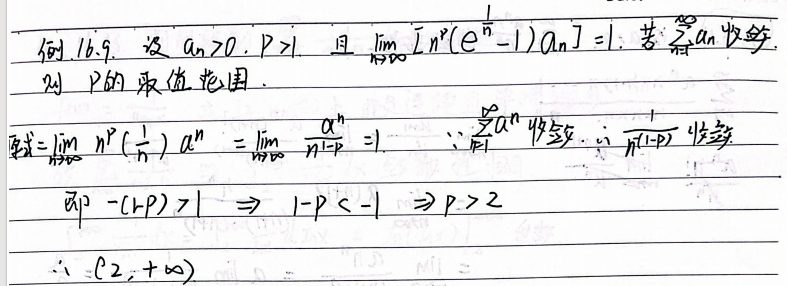 例 16.9. 设 aₙ>0. P>1 且 lim_{n→∞} [n^p(e^{1/n}-1)aₙ]=1. 若 ∑_{n=1}^{∞} aₙ 收敛.
则 P的取值范围.
原式=lim_{n→∞} n^p(1/n) aⁿ =lim_{n→∞} aⁿ/n^{1-p} =1. ∵ ∑_{n=1}^{∞} aⁿ 收敛. ∴ 1/n^{-(1-p)} 收敛
即 -(1-p)>1 ⇒ 1-p<-1 ⇒ p>2
∴ (2,+∞)